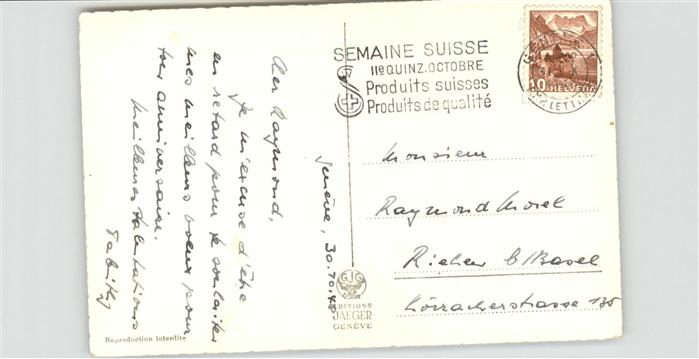 Genève, 30.10.42
Cher Raymond,
Je m'excuse d'être
en retard pour te souhaiter
mes meilleurs voeux pour
ton anniversaire.
Meilleures salutations
SEMAINE SUISSE
IIe QUINZ. OCTOBRE
Produits suisses
Produits de qualité
HELVETIA
Monsieur
Raymond Morel
Riehen b/Basel
Lörracherstrasse 135
GJG
EDITIONS
JAEGER
GENÈVE
Reproduction interdite